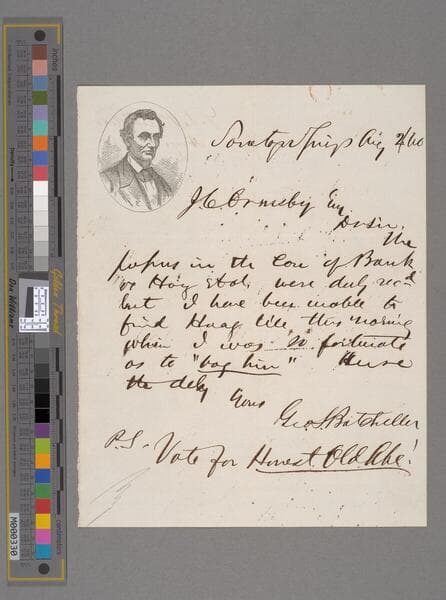 Saratoga Springs Aug 2/60
J C Ormsby Esq
Dr Sir.
The
papers in the Case of Bank
vs Hoag et al, were duly recd
but I have been unable to
find Hoag till this morning
when I was so fortunate
as to "bag him" Hence
the delay
Yours
Geo S Batcheller
P.S. Vote for Honest Old Abe!
inches
centimeters
M000330
Golden Thread
Don Williams
Density